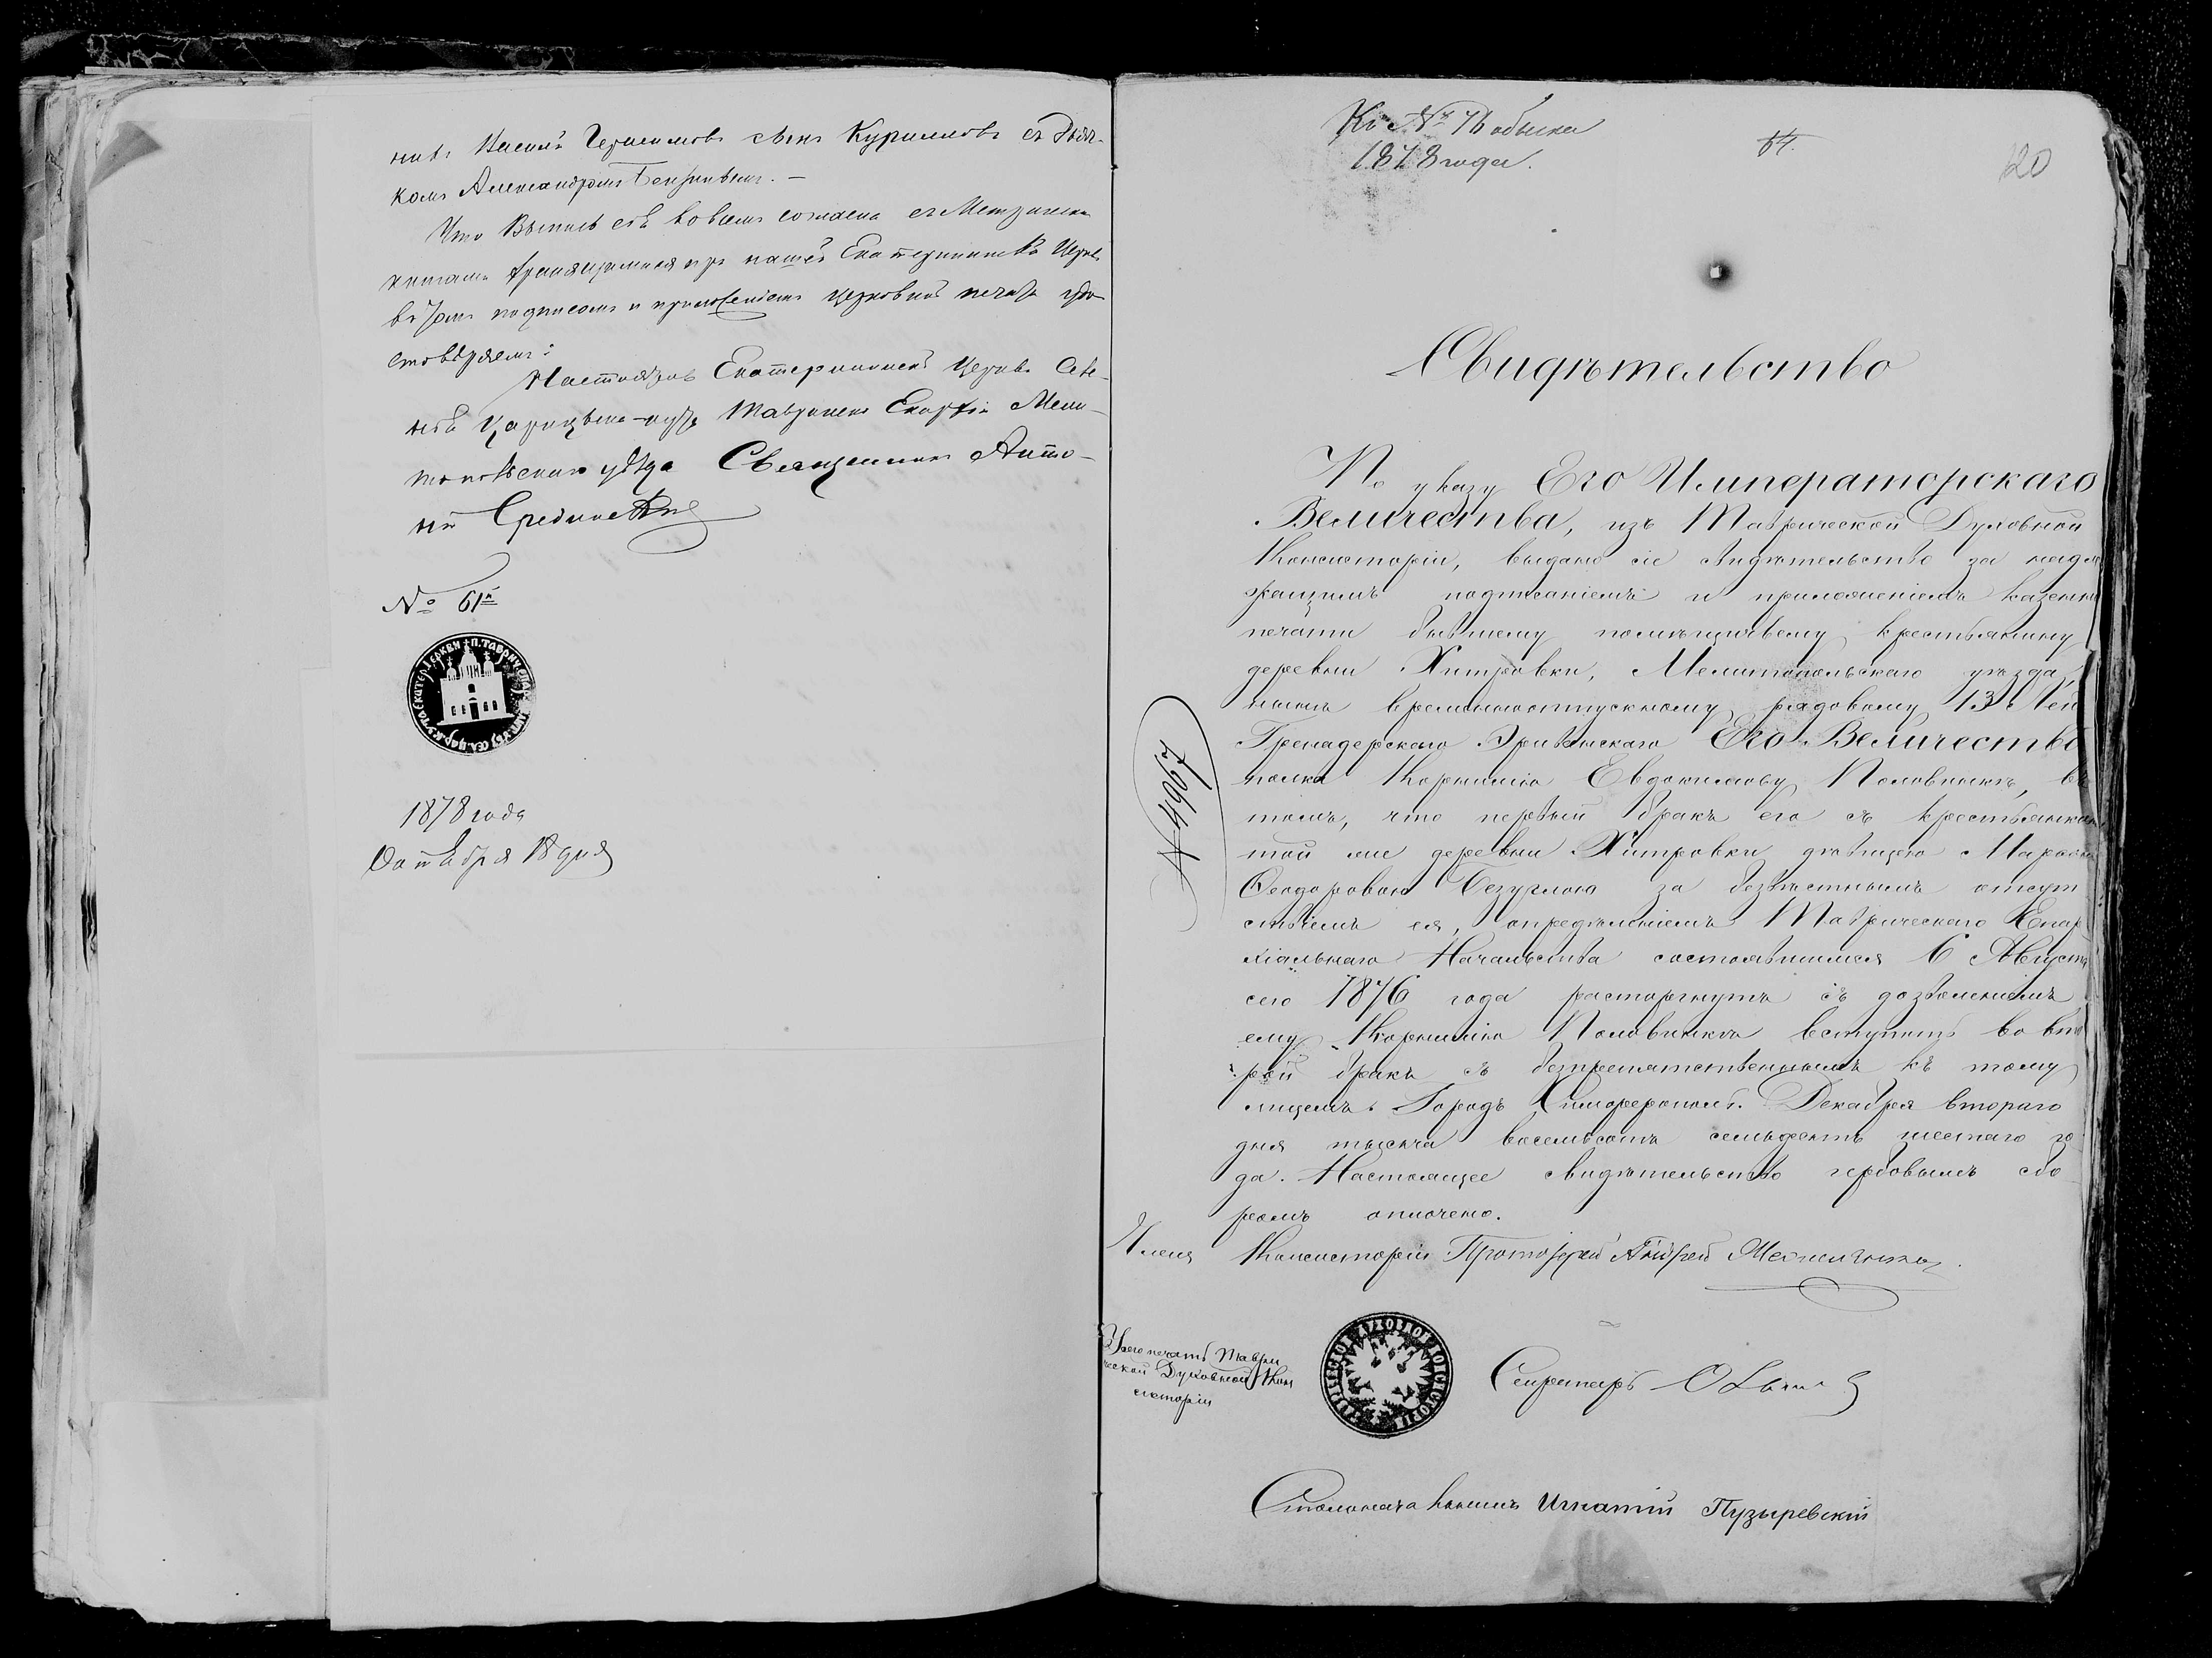 никъ Василій Герасимовъ сынъ Куриловъ съ дьяч-
комъ Александромъ
Что Выпись сія во всемъ согласна съ Метрическими
книгами хранящимися при нашей Екатерининской Церкви
въ томъ подписомъ и приложеніемъ церковной печати удо-
стовѣряемъ:
Настоятель Екатерининской Церкви Селе-
нія Царицына-кута Таврической Епархіи Мели-
топольскаго уѣзда Священникъ Анто-
ній
№ 61й
1878 года
Октября 18 дня
Къ № 76 обыска
1878 года.
84.
120
Свидѣтельство
По указу Его Императорскаго
Величества, изъ Таврической Духовной
Консисторіи, выдано сіе свидѣтельство за надле
жащимъ подписаніемъ и приложеніемъ казенной
печати бывшему помѣщичьему крестьянину
деревни Хитровки, Мелитопольскаго уѣзда,
нынѣ временноотпускному рядовому 13 Лей
Гренадерскаго Эриванскаго Его Величества
полка Корнилію Евдокимову Половинкѣ, въ
томъ, что первый бракъ его съ крестьянкою
той же деревни Хитровки дѣвицею
Ѳеодоровою Безуглою за безвѣстнымъ отсут
ствіемъ ея, опредѣленіемъ Таврическаго Епар
хіальнаго Начальства состоявшимся 6 Августа
сего 1876 года расторгнутъ съ дозволеніемъ
ему Корнилію Половинкѣ вступить во вто
рой бракъ съ безпрепятственнымъ къ тому
лицемъ. Городъ Симферополь. Декабря втораго
дня тысяча восемьсотъ семьдесятъ шестаго го
да. Настоящее свидѣтельство гербовымъ сбо
ромъ оплочено.
№ 4967
Членъ Консисторіи Протоіерей Андрей
У сего печать Таври
ческой Духовной Кон
систоріи
Секретарь
Столоначальникъ Игнатій Пузыревскій